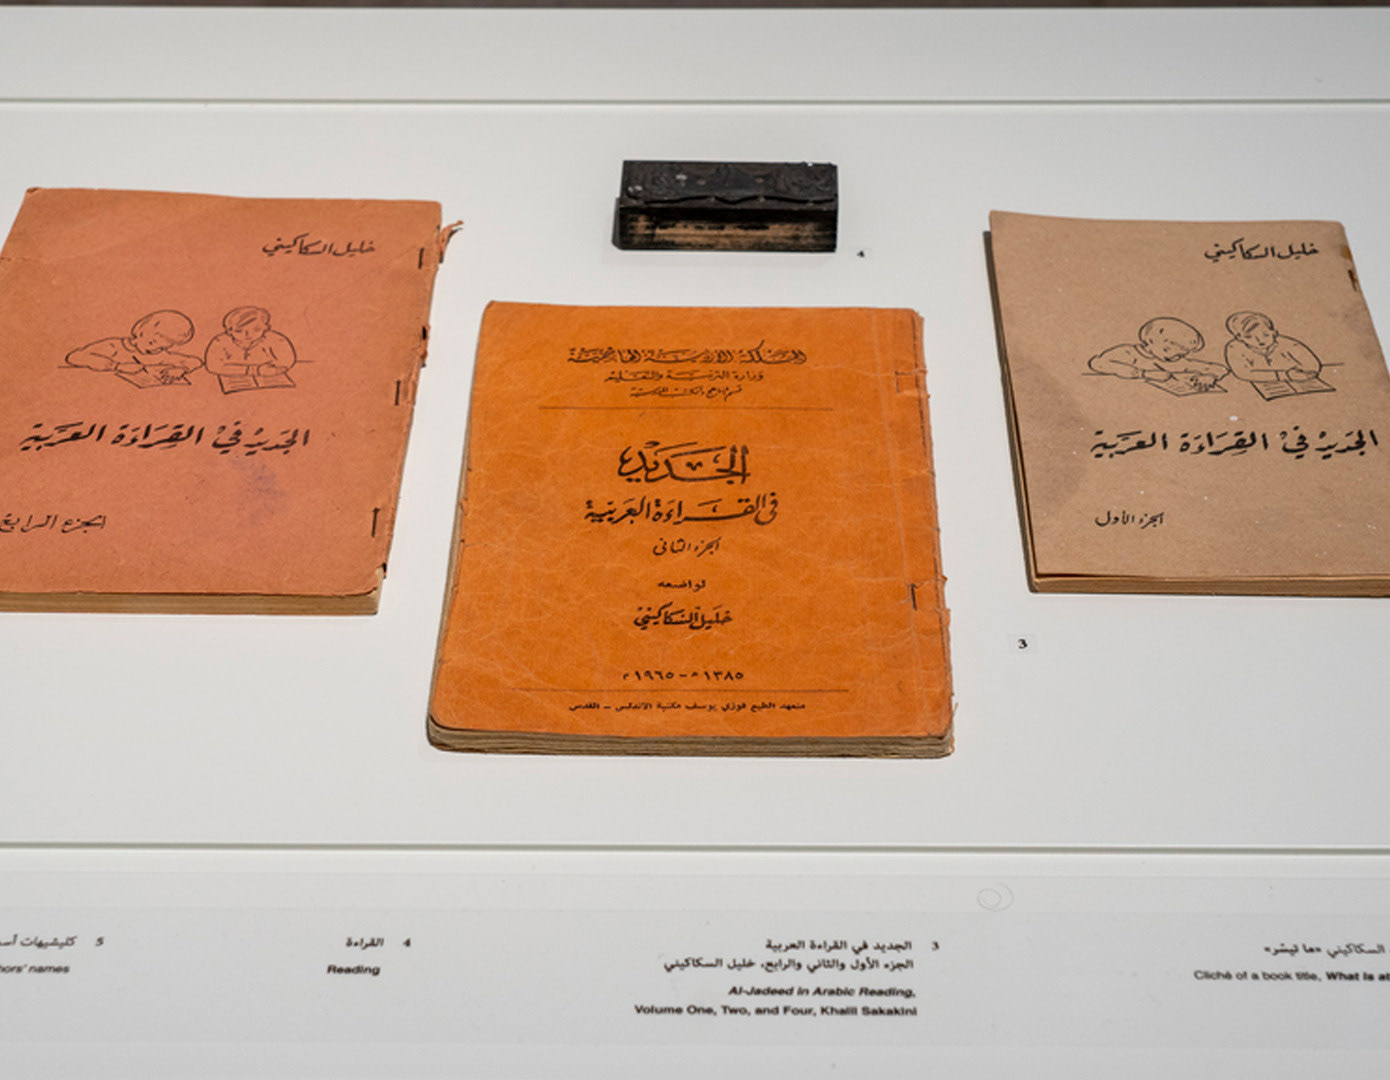 خليل السكاكيني
الجديد في القراءة العربية
الجزء الرابع
4
المملكة الأردنية الهاشمية
وزارة التربية والتعليم
الجديد
في القراءة العربية
الجزء الثاني
لواضعه
خليل السكاكيني
١٣٨٥ هـ - ١٩٦٥ م
متعهد الطبع فوزي يوسف مكتبة الاندلس – القدس
خليل السكاكيني
الجديد في القراءة العربية
الجزء الأول
3
السكاكيني «ما تيسّر»
Cliché of a book title, What is at
3 الجديد في القراءة العربية
الجزء الأول والثاني والرابع، خليل السكاكيني
Al-Jadeed in Arabic Reading,
Volume One, Two, and Four, Khalil Sakakini
4 القراءة
Reading
5 كليشيهات أسم
hors' names